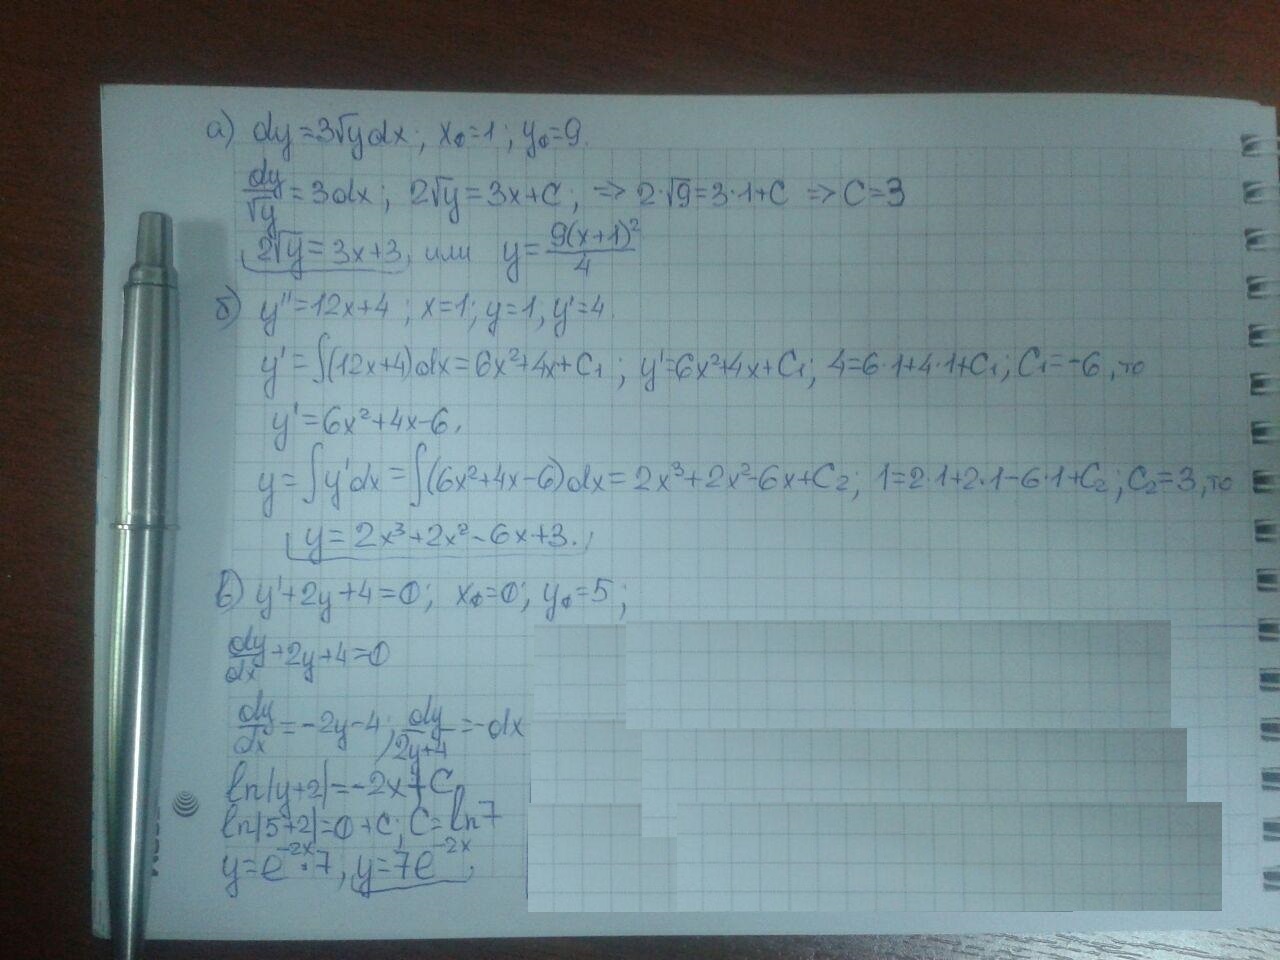 а) dy=3√ydx; x₀=1; y₀=9.
dy/√y=3dx; 2√y=3x+C; => 2·√9=3·1+C => C=3
2√y=3x+3, или y=9(x+1)²/4
б) y''=12x+4; x=1; y=1; y'=4.
y'=∫(12x+4)dx=6x²+4x+C₁; y'=6x²+4x+C₁; 4=6·1+4·1+C₁; C₁=-6, то
y'=6x²+4x-6.
y=∫y'dx=∫(6x²+4x-6)dx=2x³+2x²-6x+C₂; 1=2·1+2·1-6·1+C₂; C₂=3, то
y=2x³+2x²-6x+3.
в) y'+2y+4=0; x₀=0; y₀=5;
dy/dx+2y+4=0
dy/dx=-2y-4; dy/2y+4=-dx
ln|y+2|=-2x+C
ln|5+2|=0+C; C=ln7
y=e⁻²ˣ·7; y=7e⁻²ˣ.